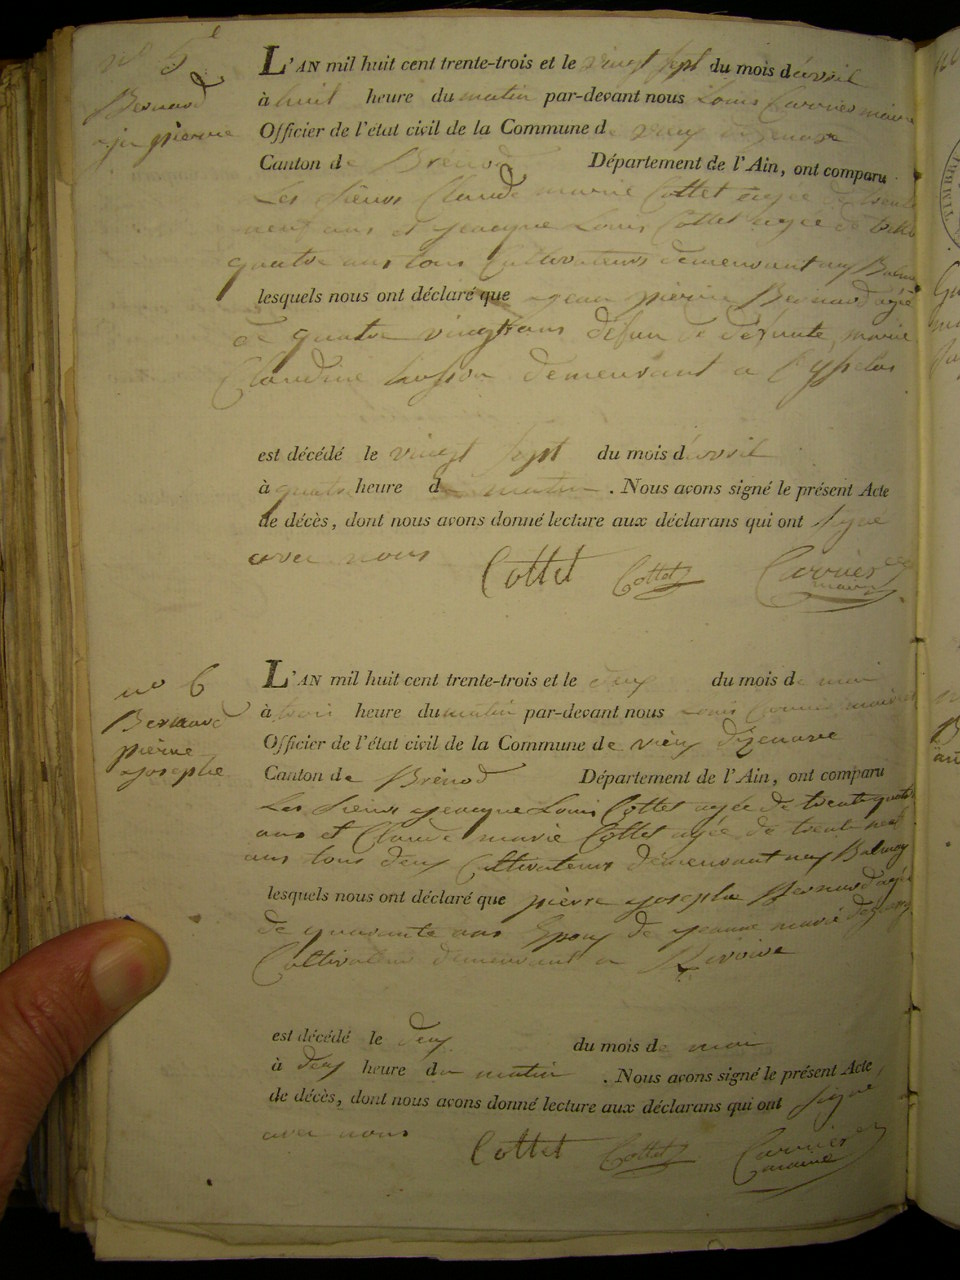 no 5
Bernard
jn pierre
L'AN mil huit cent trente-trois et le vingt sept du mois d'avril
à huit heure du matin par-devant nous Louis Carrier maire
Officier de l'état civil de la Commune de vieu dizenave
Canton de Brénod Département de l'Ain, ont comparu
Les sieurs Claude marie Cottet agée de trente
neuf ans et jeacque Louis Cottet agée de trente
quatre ans tous Cultivateurs demeurant au Balmay
lesquels nous ont déclaré que jean pierre Bernard agée
de quatre vingt ans defun de defunte marie
Claudine demeurant a
est décédé le vingt sept du mois d'avril
à quatre heure du matin. Nous avons signé le présent Acte
de décès, dont nous avons donné lecture aux déclarans qui ont signé
avec nous Cottet Cottet Carrier
maire
no 6
Bernard
pierre
josephe
L'AN mil huit cent trente-trois et le deux du mois de mai
à trois heure du matin par-devant nous Louis Carrier maire
Officier de l'état civil de la Commune de vieu dizenave
Canton de Brénod Département de l'Ain, ont comparu
Les sieurs jeacque Louis Cottet agée de trente quatre
ans et Claude marie Cottet agée de trente neuf
ans tous deux Cultivateurs démeurant au Balmay
lesquels nous ont déclaré que pierre josephe Bernard agée
de quarante ans Epoux de jeanne marie
Cultivateur demeurant a
est décédé le deux du mois de mai
à deux heure du matin. Nous avons signé le présent Acte
de décès, dont nous avons donné lecture aux déclarans qui ont signé
avec nous Cottet Cottet Carrier
maire